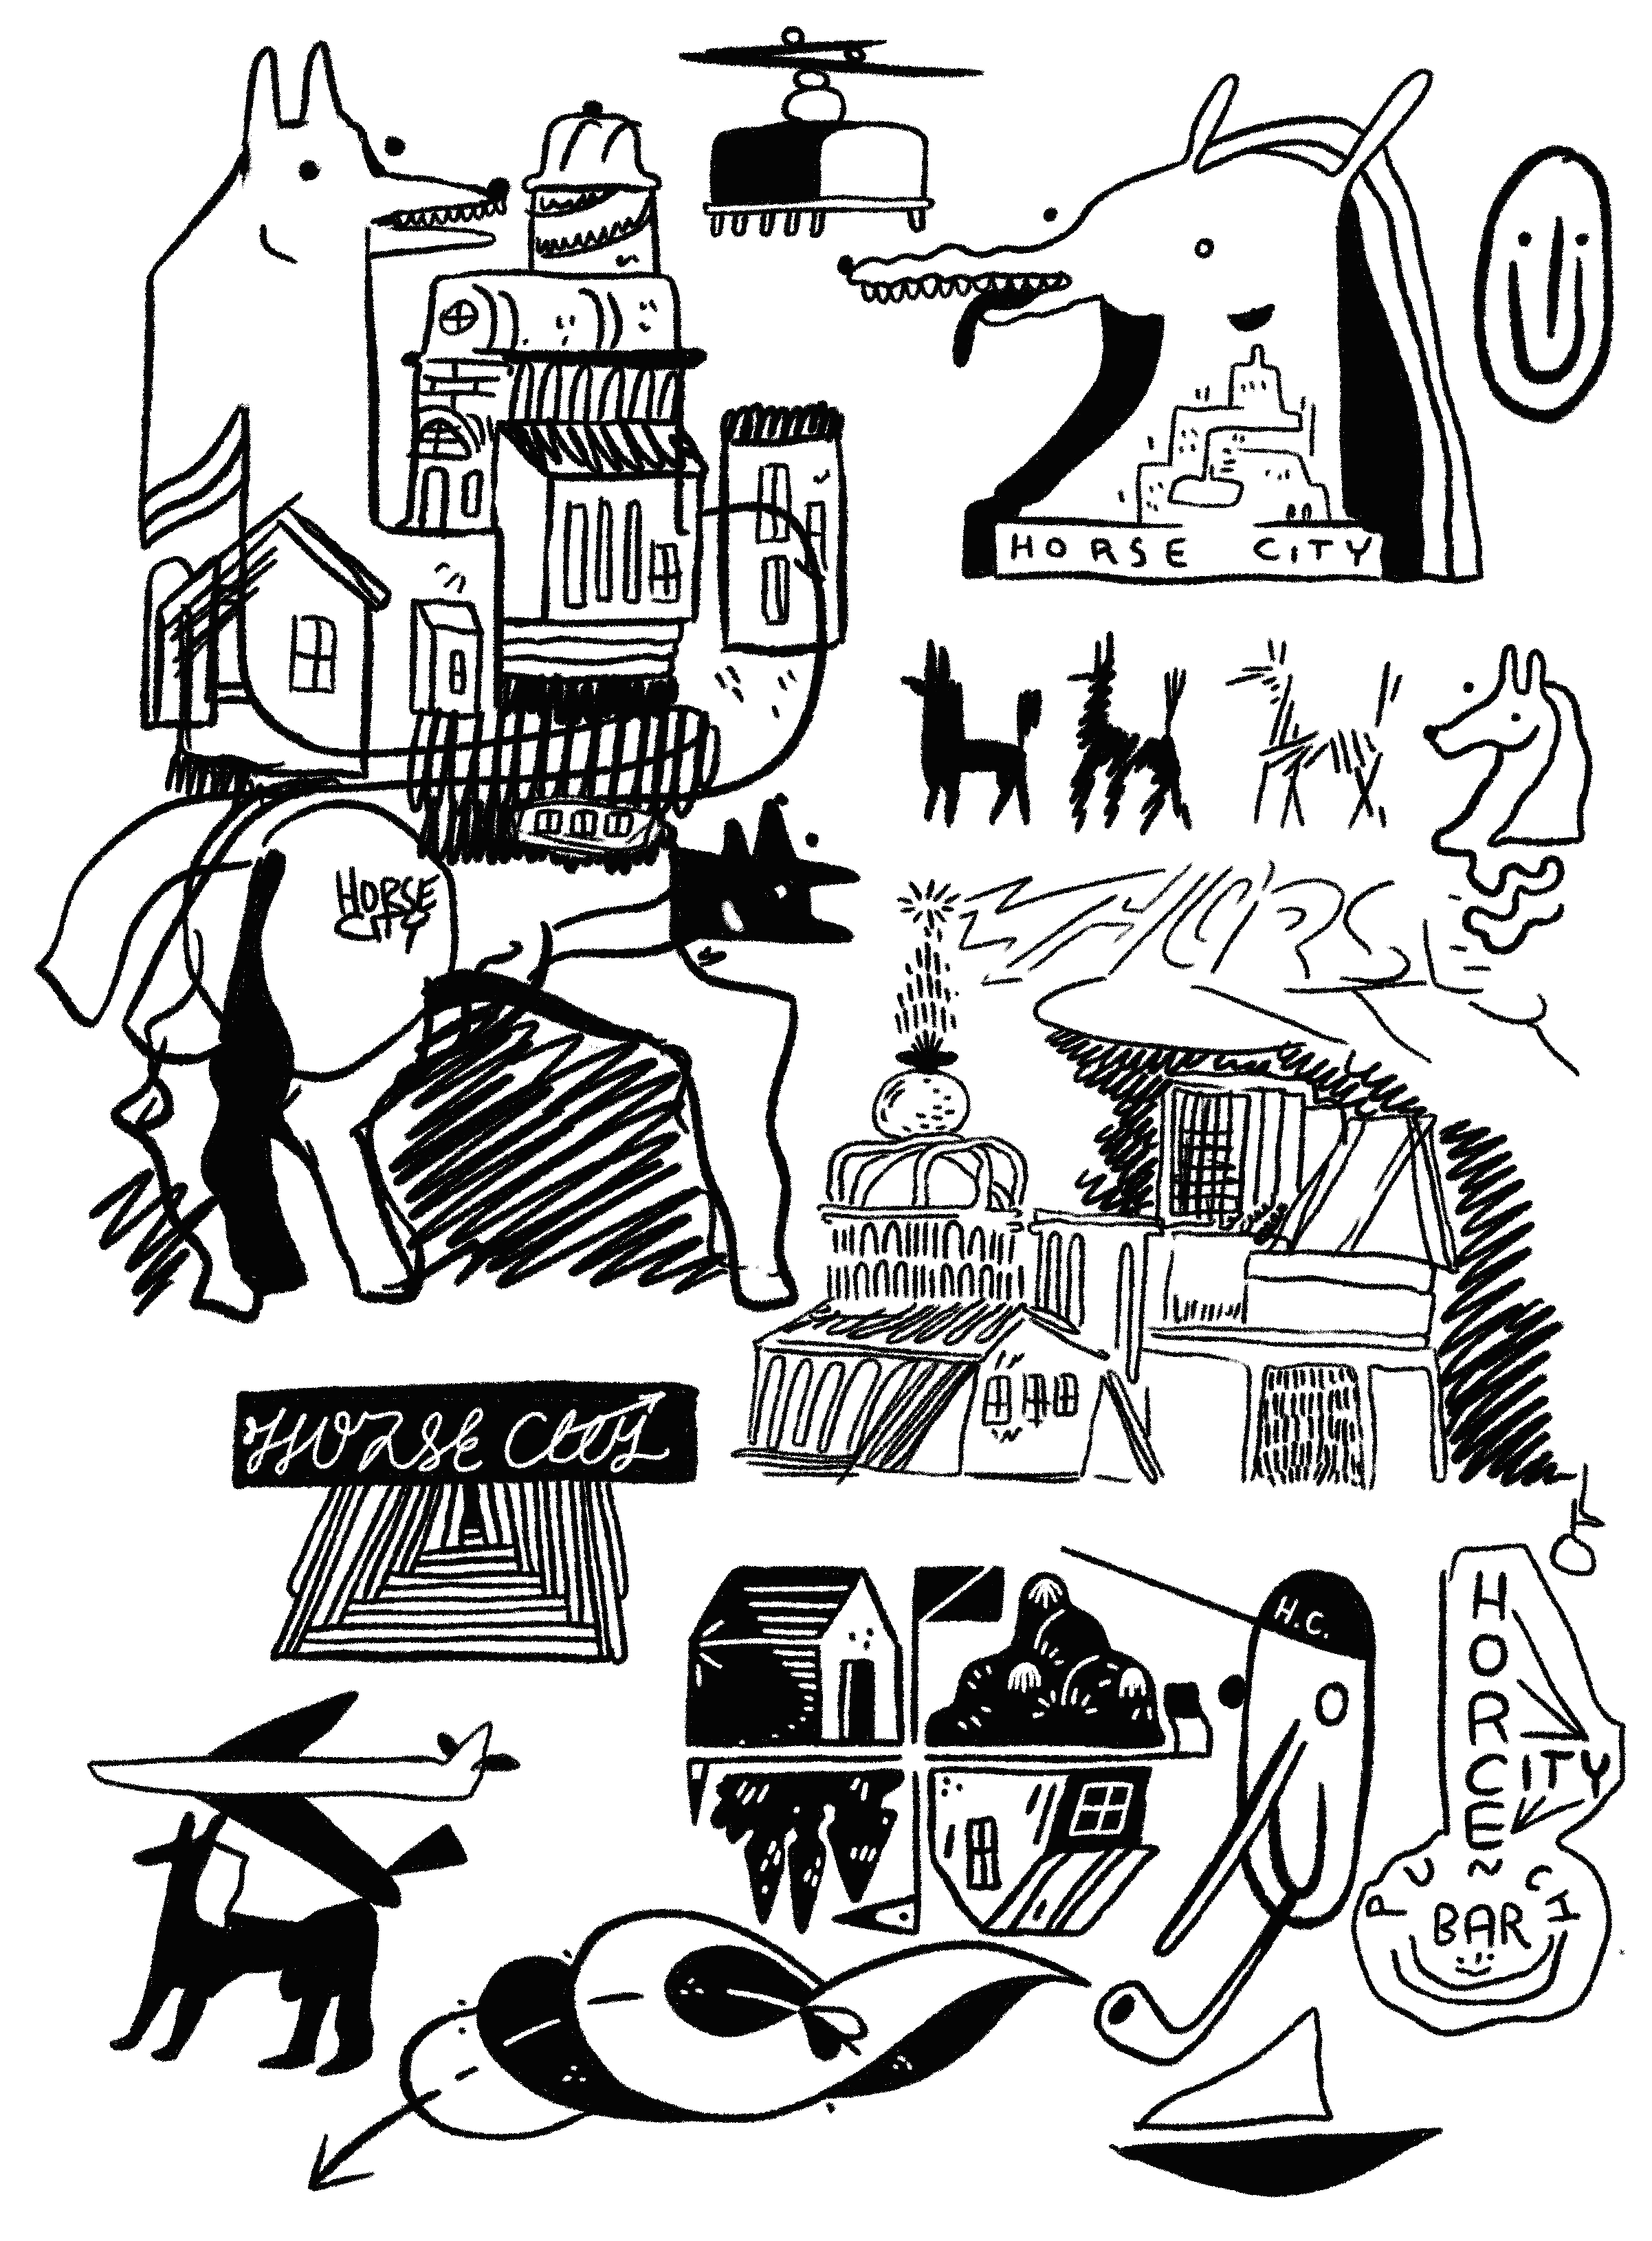 HORSE CITY
HORSE
CITY
HORSE CITY
H.C.
HORCE
CITY
PUNCH
BAR